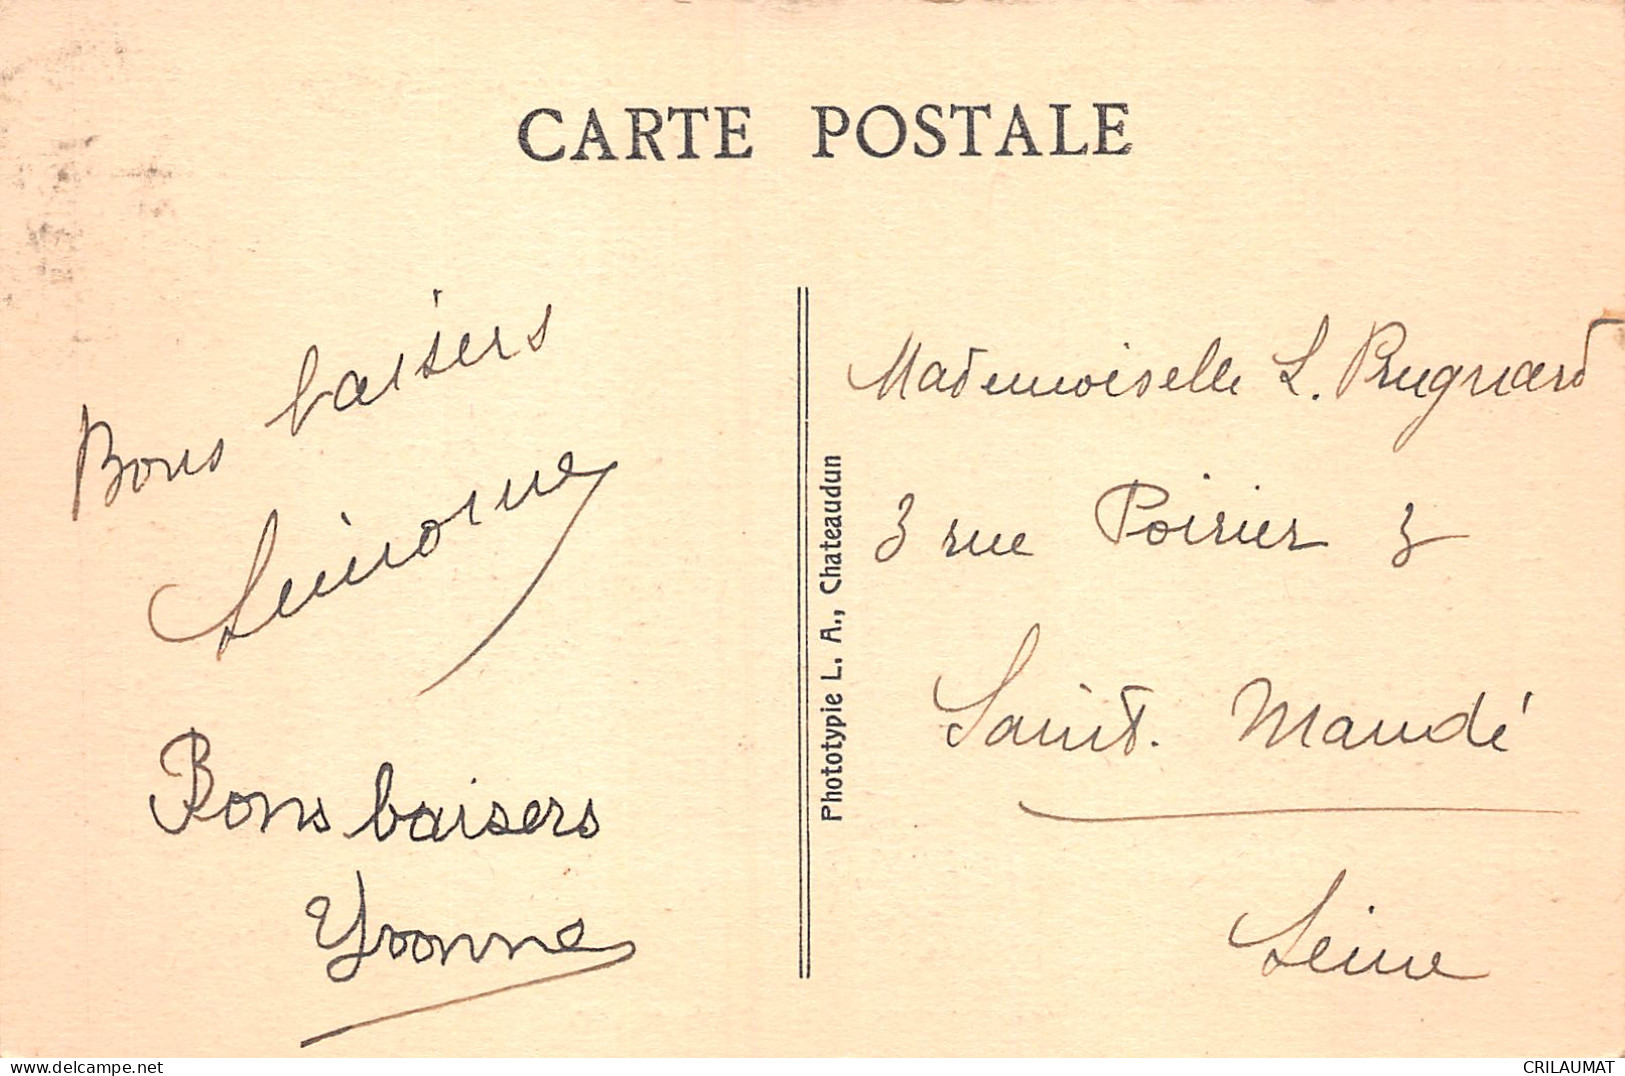 CARTE POSTALE
Bons baisers
Simone
Bons baisers
Yvonne
Phototypie L. A., Chateaudun
Mademoiselle L. Prugnard
3 rue Poirier 3
Saint. Mandé
Seine
delcampe.net
CRILAUMAT